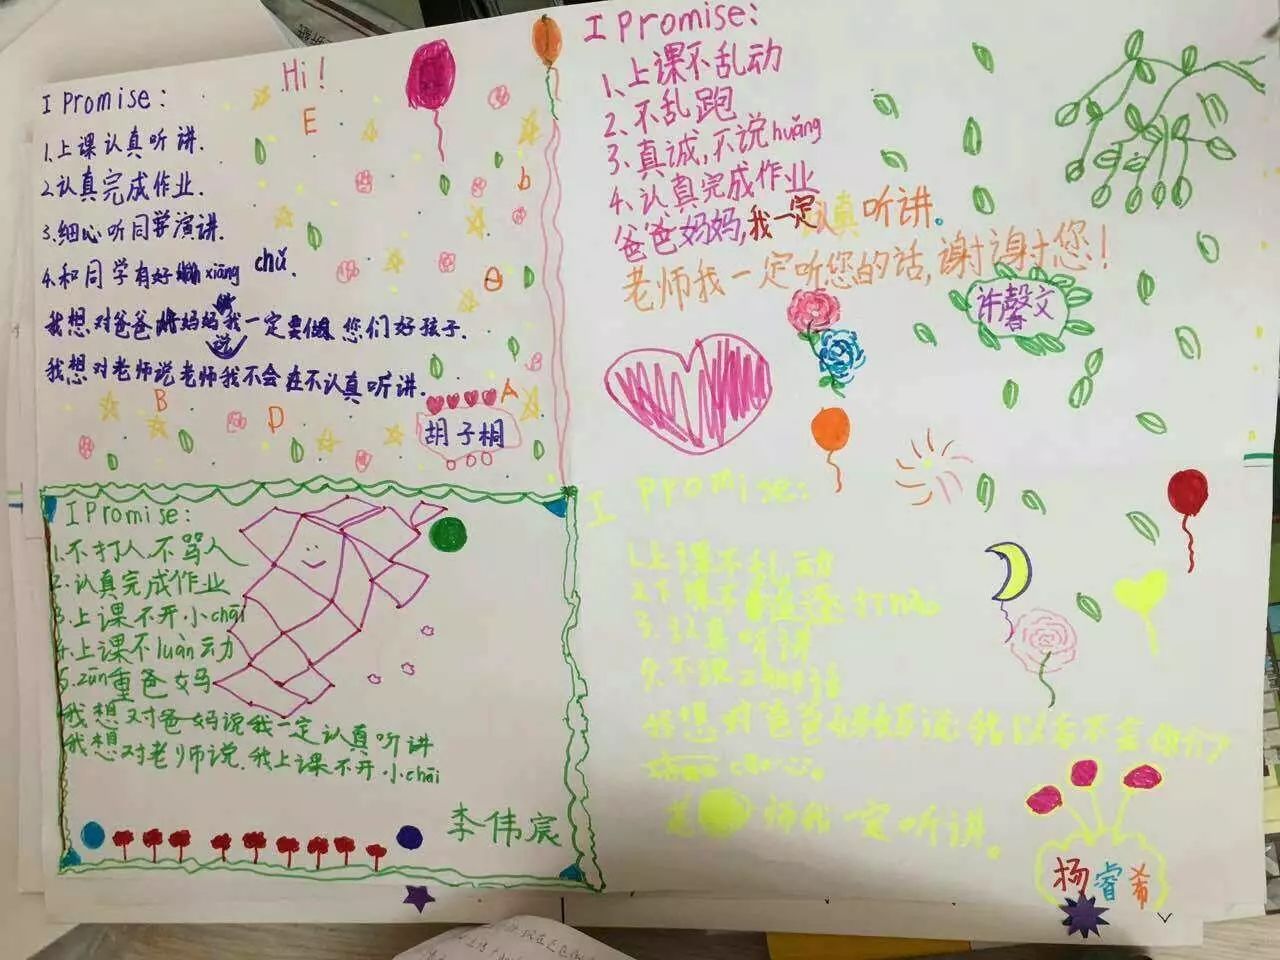 Hi!
E
b
A
B
D
A
I Promise:
1、上课认真听讲.
2.认真完成作业.
3.细心听同学演讲.
4.和同学有好 xiāng chǔ
我想对爸爸妈妈说我一定要做您们好孩子.
我想对老师说老师我不会在不认真听讲.
胡子桐
I Promise:
1、上课不乱动
2、不乱跑
3、真诚,不说huǎng
4、认真完成作业
爸爸妈妈,我一定认真听讲。
老师我一定听您的话,谢谢您!
许馨文
I Promise:
1.不打人不骂人
2.认真完成作业
3.上课不开小chāi
4.上课不luàn动
5.zūn重爸妈
我想对爸妈说我一定认真听讲
我想对老师说.我上课不开小chāi
李伟宸
I promise:
1.上课不乱动
2.下课不打nào
3.认真听讲
我想对爸爸妈妈说我以后不
师我一定听讲。
杨睿希